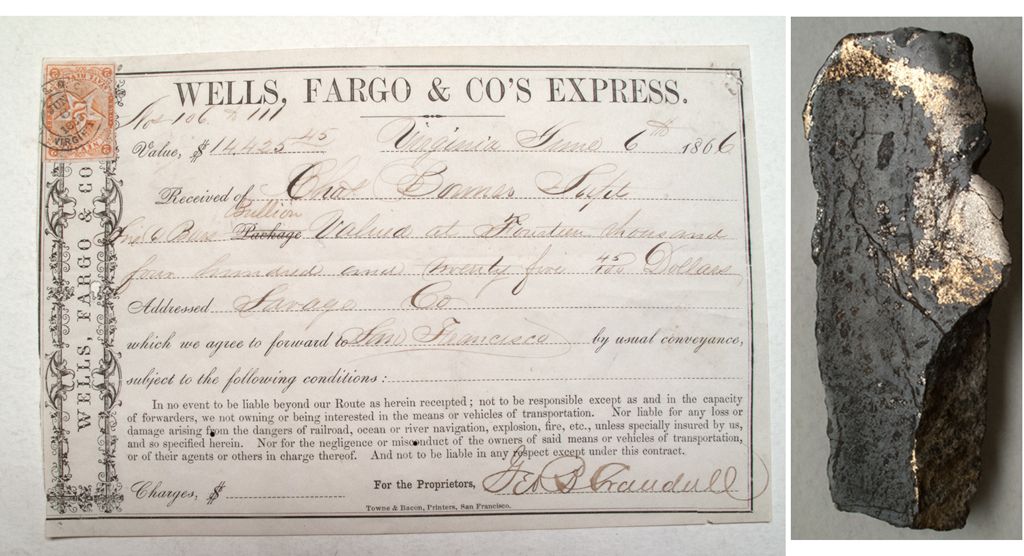 WELLS, FARGO & CO'S EXPRESS.
Nos 106 to 111
Value, $ 14,425 45 Virginia June 6th 1866
Received of Chas Bonner Supt
Bullion
Bars Package Valued at Fourteen thousand
four hundred and twenty five 45/100 Dollars,
Addressed Savage Co
which we agree to forward to San Francisco by usual conveyance,
subject to the following conditions:
In no event to be liable beyond our Route as herein receipted; not to be responsible except as and in the capacity
of forwarders, we not owning or being interested in the means or vehicles of transportation. Nor liable for any loss or
damage arising from the dangers of railroad, ocean or river navigation, explosion, fire, etc., unless specially insured by us,
and so specified herein. Nor for the negligence or misconduct of the owners of said means or vehicles of transportation,
or of their agents or others in charge thereof. And not to be liable in any respect except under this contract.
Charges, $ For the Proprietors, Geo B Crandall
Towne & Bacon, Printers, San Francisco.
WELLS, FARGO & CO
VIRGINIA